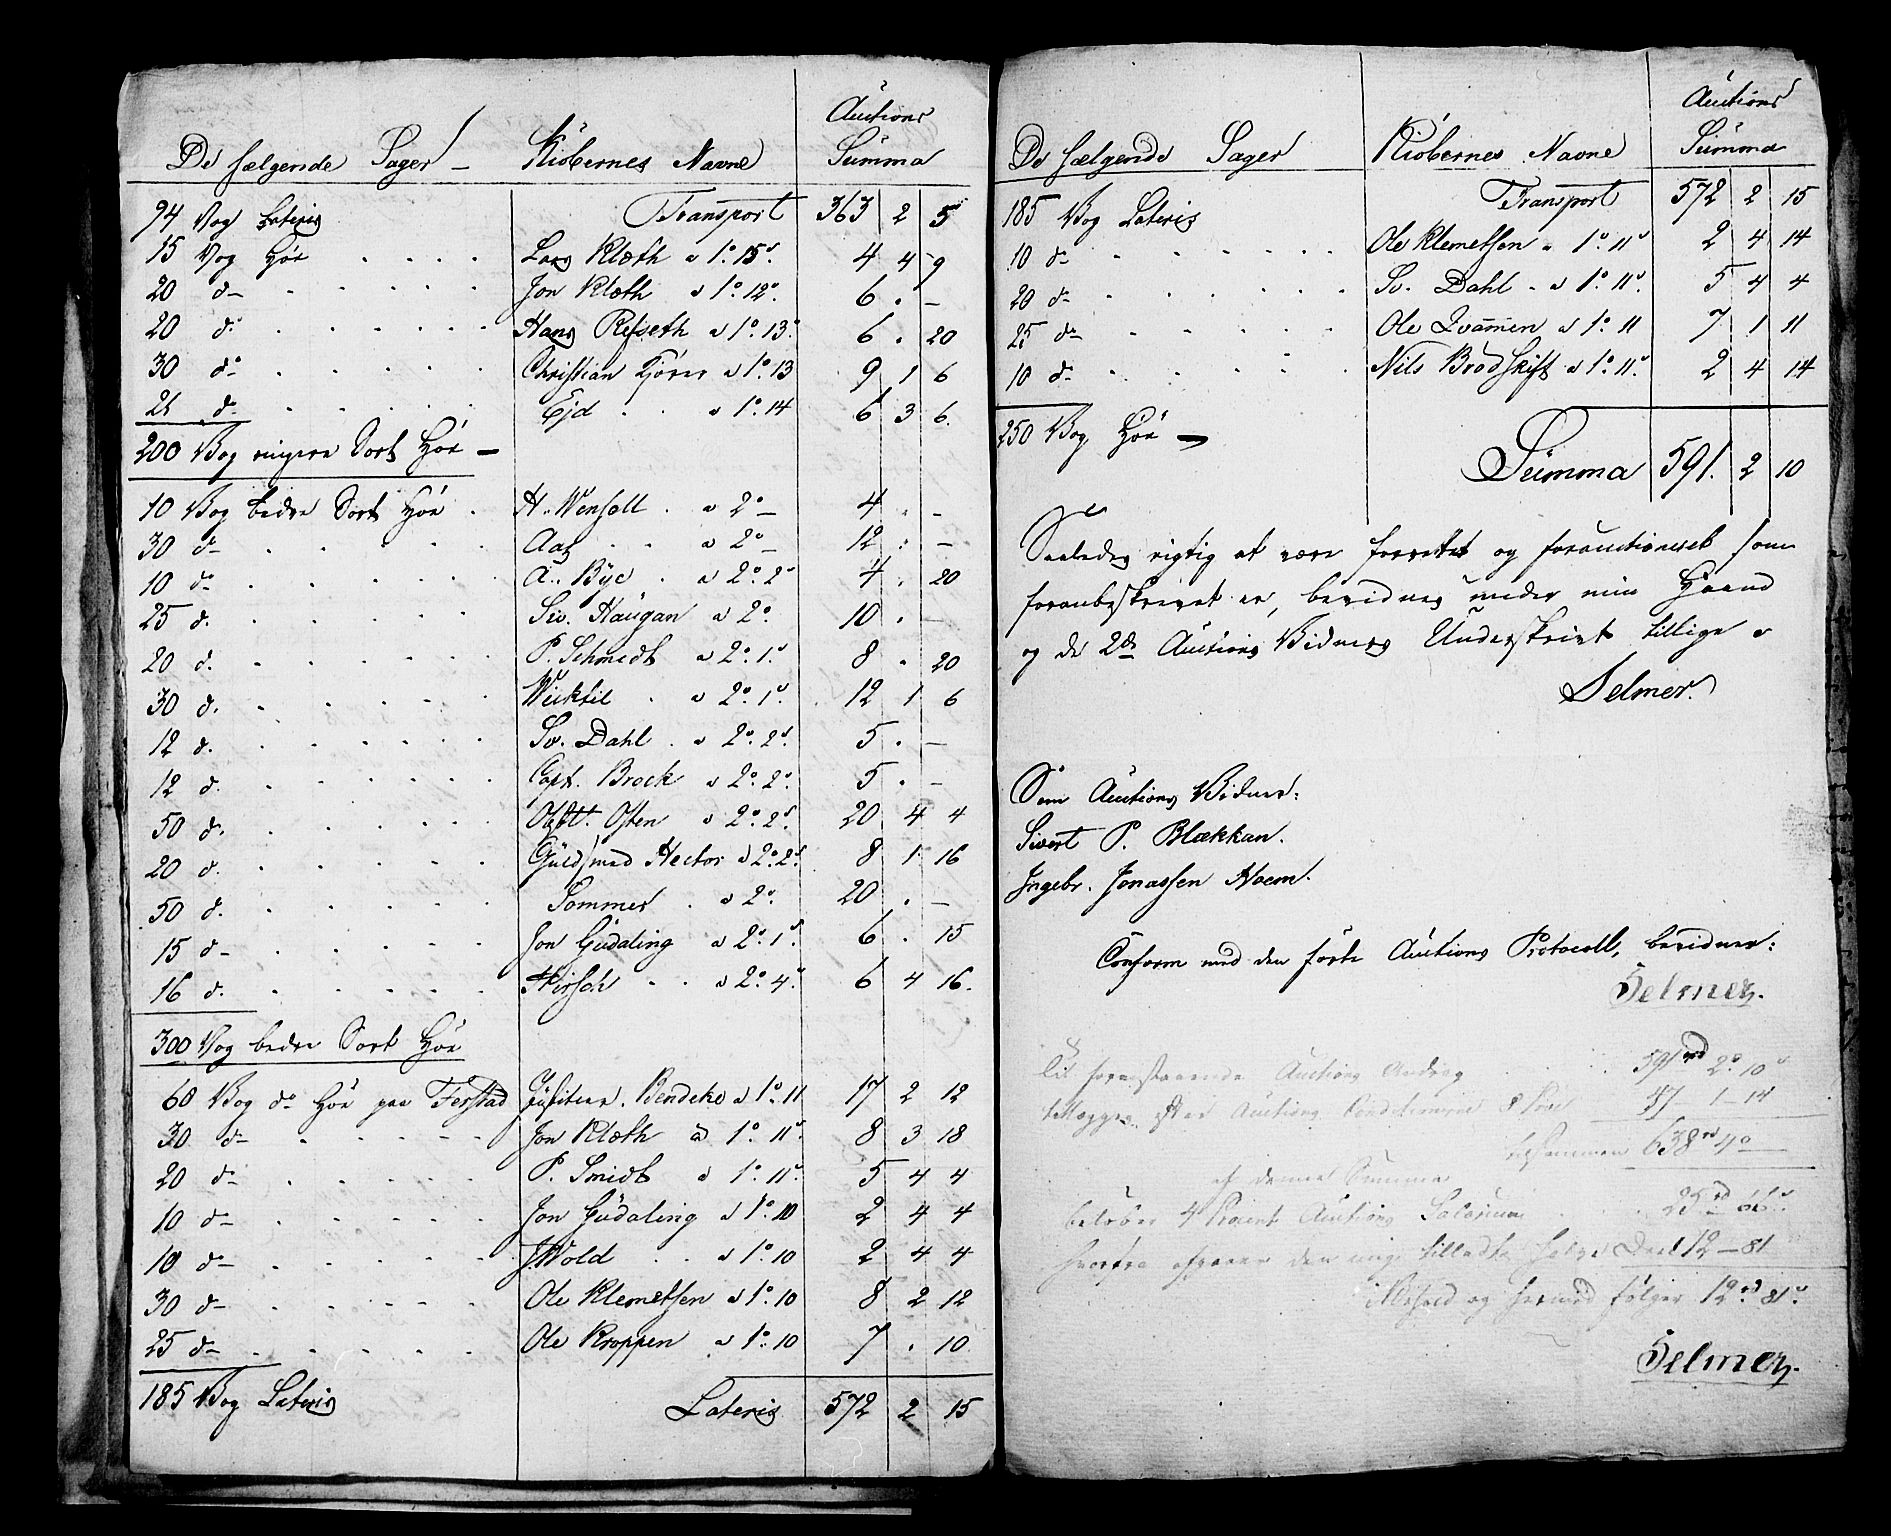 De følgende Sager — Kiöbernes Navne Auctions Summa
94 Vog Lateris Transport 363 2 5
15 Vog Höe Lars Klæth a 1o 15s. 4 4 9
20 do Jon Klæth a 1o 12s. 6 . —
20 do Hans Refseth a 1o 13s 6 . 20
30 do Christian Fjörer a 1o 13 9 1 6
21 do Ejd a 1o 14 6 3 6.
200 Vog ringere Sort Höe —
10 Vog bedre Sort Höe H. Wensell a 2o — 4 . —
30 do Aas a 2o — 12 . —
10 do A. Bye a 2o 2s 4 . 20
25 d. Siv. Haugan a 2o 10 . —
20 d. P. Schmidt a 2o 1s 8 . 20
30 d. Wicktil a 2o 1s. 12 1 6
12 d. Sv. Dahl a 2o 2s. 5 . —
12 d. Capt. Brock a 2o 2s. 5 . —
50 d. Obstl. Osten a 2o 2s. 20 4 4
20 d. Guldsmed Hector a 2o 2s. 8 1 16
50 d. Sommer a 2o. 20 . —
15 d— Jon Gudaling a 2o 1s. 6 . 15
16 d. Hirsch a 2o 4s. 6 4 16.
300 Vog bedre Sort Höe
60 Vog do Höe paa Ferstad Justitsr. Bendeke a 1o 11 17 2 12
30 do Jon Klæth a 1o 11s. 8 3 18
20 do P. Smidt a 1o 11s. 5 4 4
10 do Jon Gudaling a 1o 10 2 4 4
10 do J. Wold a 1o 10 2 4 4
30 do Ole Klemetsen a 1o 10 8 2 12
25 do Ole Kroppen a 1o 10 7 . 10
185 Vog Lateris Lateris 572 2 15
De følgende Sager Kiöbernes Navne Auctions Summa
185 Vog Lateris Transport 572 2 15
10 do Ole Klemetsen a 1o 11s 2 4 14
20 do Sv. Dahl a 1o 11s. 5 4 4
25 do Ole Qvammen a 1o 11 7 1 11
10 do Nils Brodskift a 1o 11s. 2 4 14
250 Vog Höe —
Summa 591. 2 10
Saaledes rigtig at være forrettet og forauctioneret som
foranbeskrevet er, bevidnes under min Haand
og de 2de Auctions Vidners Underskrivt tillige
Selmer.
Som Auctions Vidner:
Sivert P. Blækkan.
Ingebr. Jonassen Moem.
Conform med den förte Auctions Protocoll, bevidner:
Selmer.
Til foranstaaende Auctions Andrag 591rd 2o 10s
tillægges efter Auctions Conditionerne 8 Procent 47 — 1 — 14
tilsammen 638rd 4o —
af denne Summa
beløber 4 Procent Auctions Salarium 25rd 66s.
hvorfra afgaaer den mig tilladte halve Deel 12 — 81
i Behold og hermed følger 12rd 81s.
Selmer.